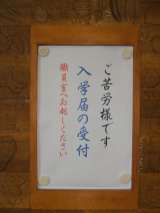 ご苦労様です
入学届の受付
職員室へお越しください